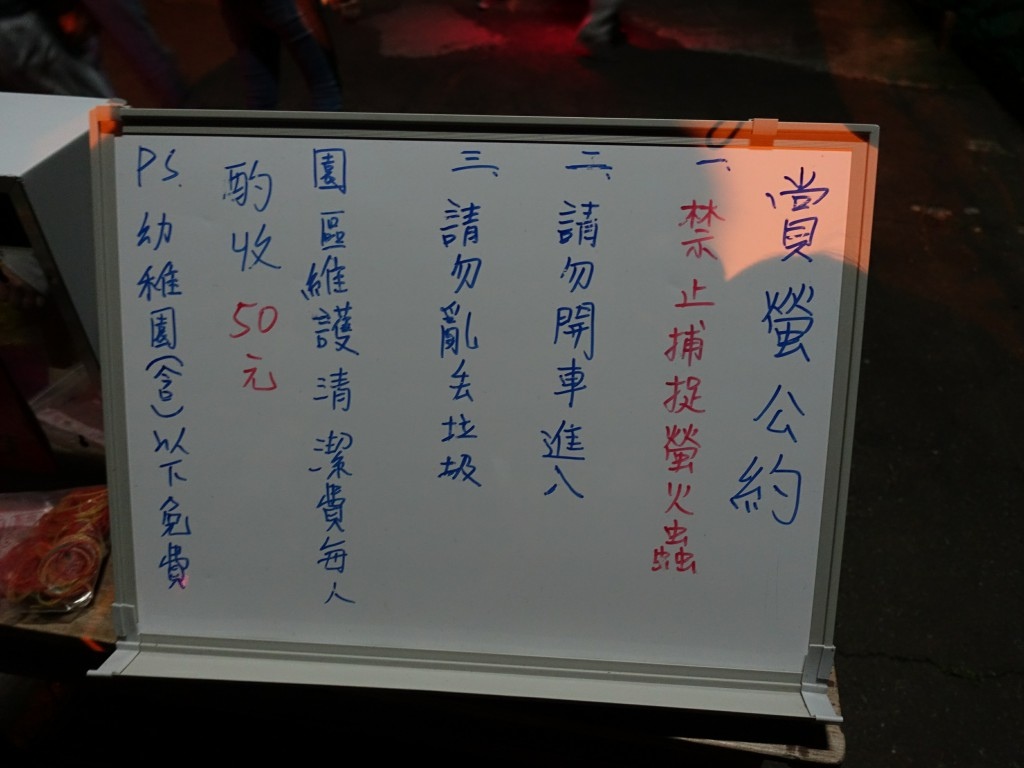 賞螢公約
一、禁止捕捉螢火蟲
二、請勿開車進入
三、請勿亂丟垃圾
園區維護清潔費每人
酌收50元
PS.幼稚園(含)以下免費